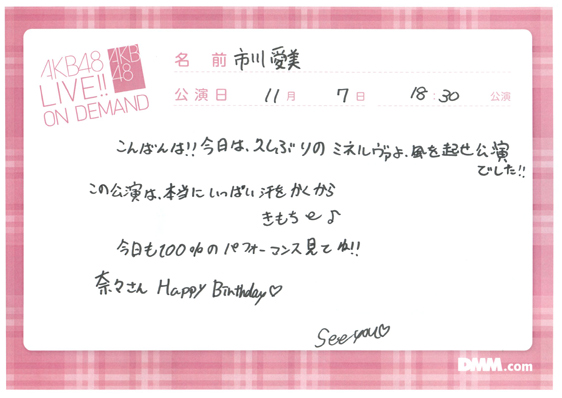 AKB48
LIVE!!
ON DEMAND
AKB
48
名 前 市川 愛美
公演日 11月 7日 18:30 公演
こんばんは!!今日は、久しぶりの ミネルヴァよ、風を起せ公演
でした!!
この公演は、本当にいっぱい汗をかくから
きもちe♪
今日も100%のパフォーマンス見てね!!
奈々さん Happy Birthday♡
See you♡
DMM.com